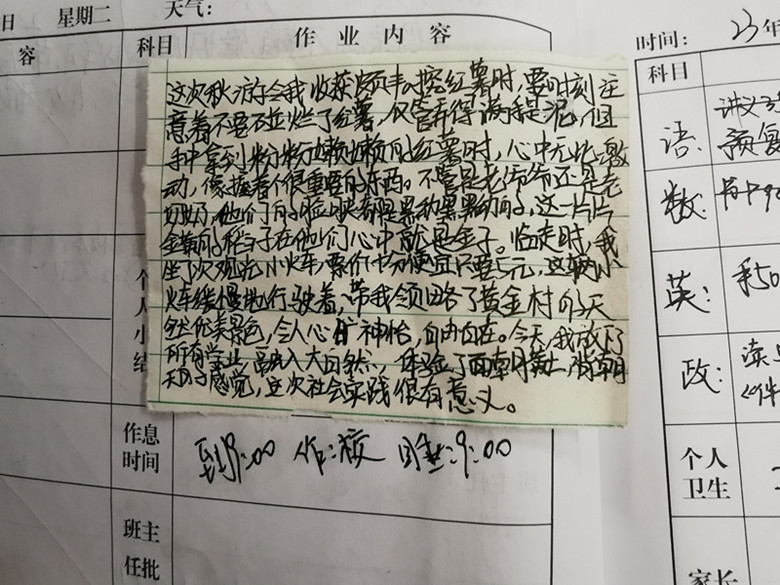 日 星期二 天气:
容 科目 作业内容
这次秋游令我收获颇丰,挖红薯时,要时刻注
意着不要碰烂了红薯,仅管弄得满手是泥,但
手中拿到粉粉嫩嫩的红薯时,心中无比激
动,像握着个很重要的东西。不管是老爷爷还是老
奶奶,他们的脸映着都是黑黝黑黝的,这一片片
金黄的稻子在他们心中就是金子。临走时,我
坐了次观光小火车,票价十分便宜只要5元,这辆小
火车缓慢地行驶着,带我领略了黄金村的天
然优美景色,令人心旷神怡,自由自在。今天,我放下
所有学业,融入大自然,体验了面朝黄土,背朝
天的感觉,这次社会实践很有意义。
个人小结
作息时间 到:8:00 作:校 睡:9:00
班主
任批
时间: 23年
科目
语:讲义
预复
数:
英:
政:读
个人
卫生
家长